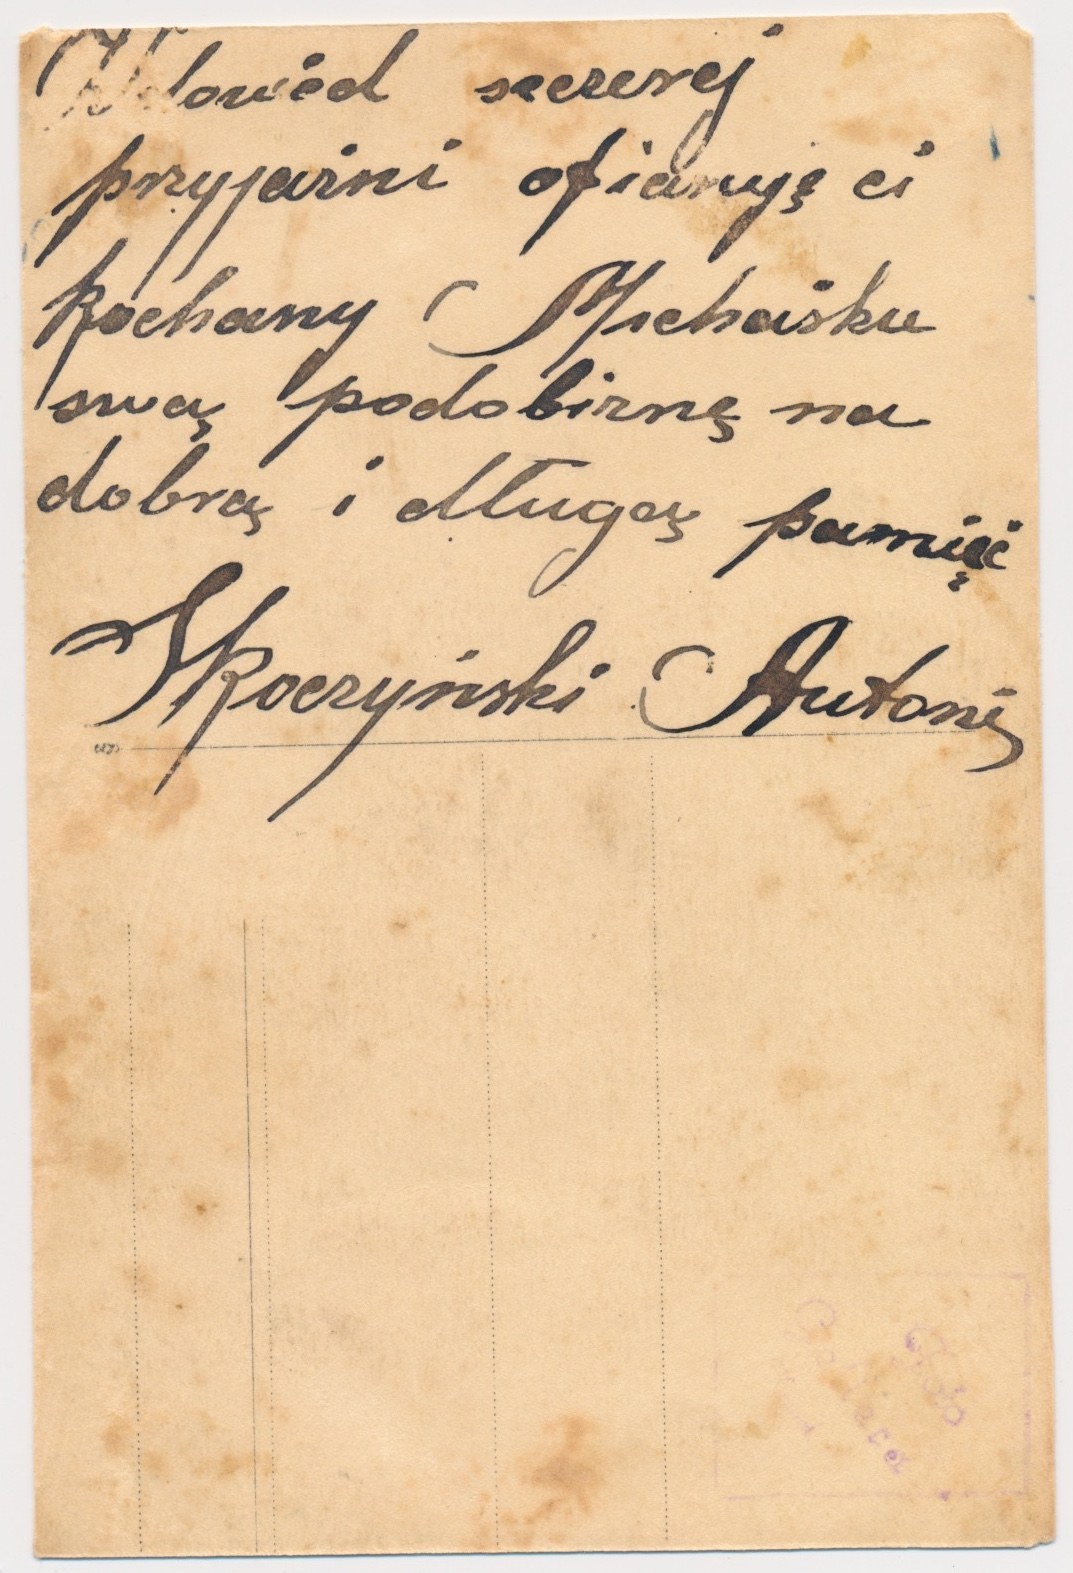 W dowód szczerej
przyjaźni ofiaruję ci
kochany Michaśku
swą podobiznę na
dobrą i długą pamięć
Skoczyński Antoni